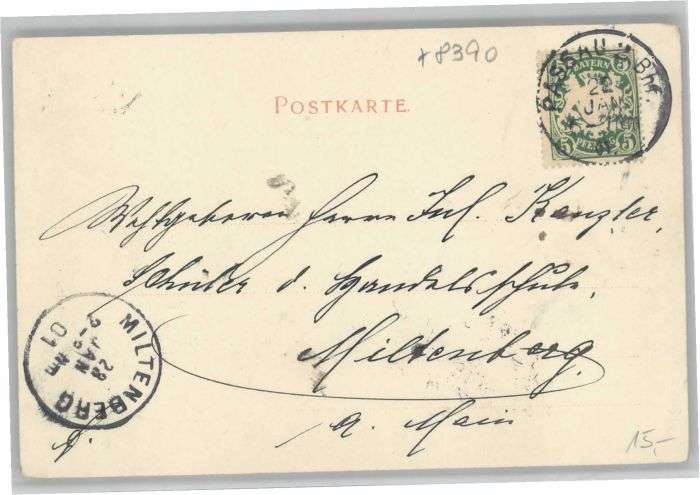 +8390
BAYERN
5 5
PFENNIG
PASSAU Bhf.
22
JAN
POSTKARTE.
Wohlgeboren Herrn Jul. Kanzler,
Schüler d. Handelsschule,
Miltenberg
a. Main
MILTENBERG
23
JAN
01
15,-